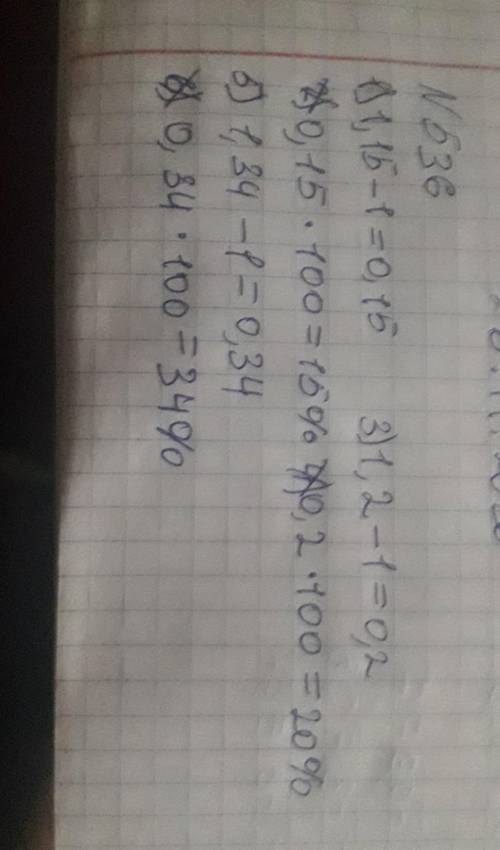 N 536
1) 1,15 - 1 = 0,15 3) 1,2 - 1 = 0,2
2) 0,15 · 100 = 15% 4) 0,2 · 100 = 20%
5) 1,34 - 1 = 0,34
6) 0,34 · 100 = 34%